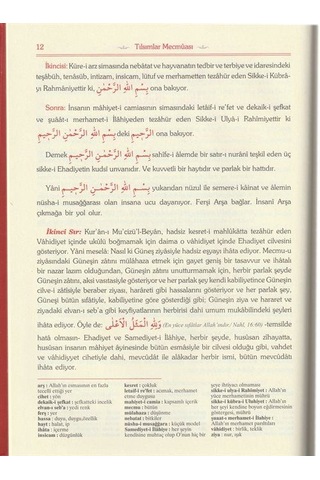 12 Tılsımlar Mecmûası
İkincisi: Küre-i arz simasında nebâtat ve hayvanatın tedbir ve terbiye ve idaresindeki
teşâbüh, tenâsüb, intizam, insicam, lütuf ve merhametten tezâhür eden Sikke-i Kübrâ-
yı Rahmâniyettir ki, بِسْمِ اللّٰهِ الرَّحْمٰنِ ona bakıyor.
Sonra: İnsanın mâhiyet-i camiasının simasındaki letâif-i re'fet ve dekaik-i şefkat
ve şuâat-ı merhamet-i İlâhiyeden tezâhür eden Sikke-i Ulyâ-i Rahîmiyettir ki
بِسْمِ اللّٰهِ الرَّحْمٰنِ الرَّحِيمِ deki الرَّحِيمِ ona bakıyor.
Demek بِسْمِ اللّٰهِ الرَّحْمٰنِ الرَّحِيمِ sahife-i âlemde bir satır-ı nurânî teşkil eden üç
sikke-i Ehadiyetin kudsî unvanıdır. Ve kuvvetli bir haytıdır ve parlak bir hattıdır.
Yâni بِسْمِ اللّٰهِ الرَّحْمٰنِ الرَّحِيمِ yukarıdan nüzul ile semere-i kâinat ve âlemin
nüsha-i musağğarası olan insana ucu dayanıyor. Ferşi Arşa bağlar. İnsanî Arşa
çıkmağa bir yol olur.
İkinci Sır: Kur'ân-ı Mu'cizü'l-Beyân, hadsiz kesret-i mahlûkâtta tezâhür eden
Vâhidiyet içinde ukûlü boğmamak için daima o vâhidiyet içinde Ehadiyet cilvesini
gösteriyor. Yâni meselâ: Nasıl ki Güneş ziyâsiyle hadsiz eşyayı ihâta ediyor. Mecmu-u
ziyasındaki Güneşin zâtını mülâhaza etmek için gayet geniş bir tasavvur ve ihâtalı
bir nazar lazım olduğundan, Güneşin zâtını unutturmamak için, herbir parlak şeyde
Güneşin zâtını, aksi vasıtasiyle gösteriyor ve her parlak şey kendi kabiliyetince Güneşin
cilve-i zâtîsiyle beraber ziyası, harâreti gibi hassalarını gösteriyor ve her parlak şey,
Güneşi bütün sıfâtiyle, kabiliyetine göre gösterdiği gibi; Güneşin ziya ve hararet ve
ziyadaki elvan-ı seb'a gibi keyfiyatlarının herbirisi dahi umum mukabilindeki şeyleri
ihâta ediyor. Öyle de: وَلِلّٰهِ الْمَثَلُ الْاَعْلٰى (En yüce sıfatlar Allah'ındır/ Nahl, 16:60) -temsilde
hatâ olmasın- Ehadiyet ve Samediyet-i İlâhiye, herbir şeyde, hususan zîhayatta,
hususan insanın mâhiyet âyinesinde bütün esmâsiyle bir cilvesi olduğu gibi, vahdet
ve vâhidiyet cihetiyle dahi, mevcudât ile alâkadar herbir ismi, bütün mevcudâtı
ihâta ediyor.
arş : Allah'ın ezmanının en fazla
tecelli ettiği yer
cihet : yön
dekaik-i şefkat : şefkatteki incelik
elvan-ı seb'a : yedi renk
ferş : yer
hassa : duyu, duygu,özellik
hayt : bulut, ip
ihâta : içerme
insicam : düzgünlük
kesret : çokluk
letaif-i re'fet : acımak, merhamet
etme duygusu
mahiyet-i camia : kapsamlı içerik
mecmu : bütün
mülahaza : düşünme
nebatat : bitkiler
nüsha-i musağğara : küçük model
Samediyet-i İlâhiye : her şeyin
kendisine muhtaç olup O'nun hiç bir
şeye ihtiyacı olmaması
sikke-i ulya-i Rahimiyet : Allah'ın
yüce merhametinin mührü
sikke-i kübra-i Uluhiyet : Allah'ın
her şeyi kendine boyun eğdirmesinin
göstergesi, mührü
şuaat-ı merhamet-i İlahiye :
Allah'ın merhamet parıltıları
vâhidiyet : birlik, teklik
ziya : nur, ışık